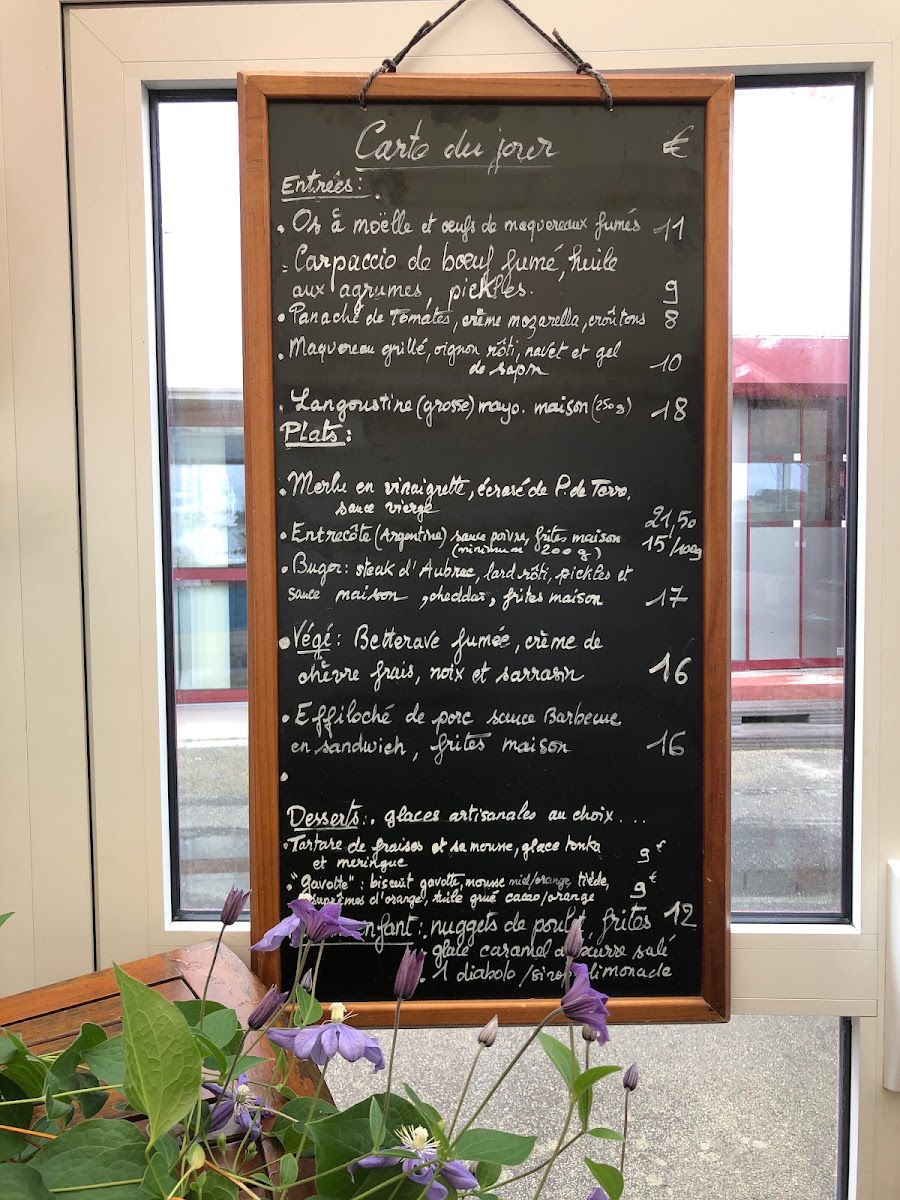 Carte du jour €
Entrées :
• Os à moëlle et œufs de maquereaux fumés 11
• Carpaccio de bœuf fumé, huile
aux agrumes, pickles. 9
• Panaché de Tomates, crème mozarella, croûtons 8
• Maquereau grillé, oignon rôti, navet et gel
de sapin 10
• Langoustine (grosse) mayo. maison (250g) 18
Plats :
• Merlu en vinaigrette, écrasé de P. de Terre,
sauce vierge 21,50
• Entrecôte (Argentine) sauce poivre, frites maison 15/100g
(minimum 200g)
• Burger : steak d'Aubrac, lard rôti, pickles et
sauce maison, cheddar, frites maison 17
• Végé : Betterave fumée, crème de
chèvre frais, noix et sarrasin 16
• Effiloché de porc sauce Barbecue
en sandwich, frites maison 16
•
Desserts : • glaces artisanales au choix ....
• Tartare de fraises et sa mousse, glace tonka
et meringue 9€
• "gavotte" : biscuit gavotte, mousse miel/orange, tiède, 9€
suprêmes d'orange, tuile grué cacao/orange
enfant : nuggets de poulet, frites 12
• glace caramel beurre salé
• 1 diabolo / sirop limonade